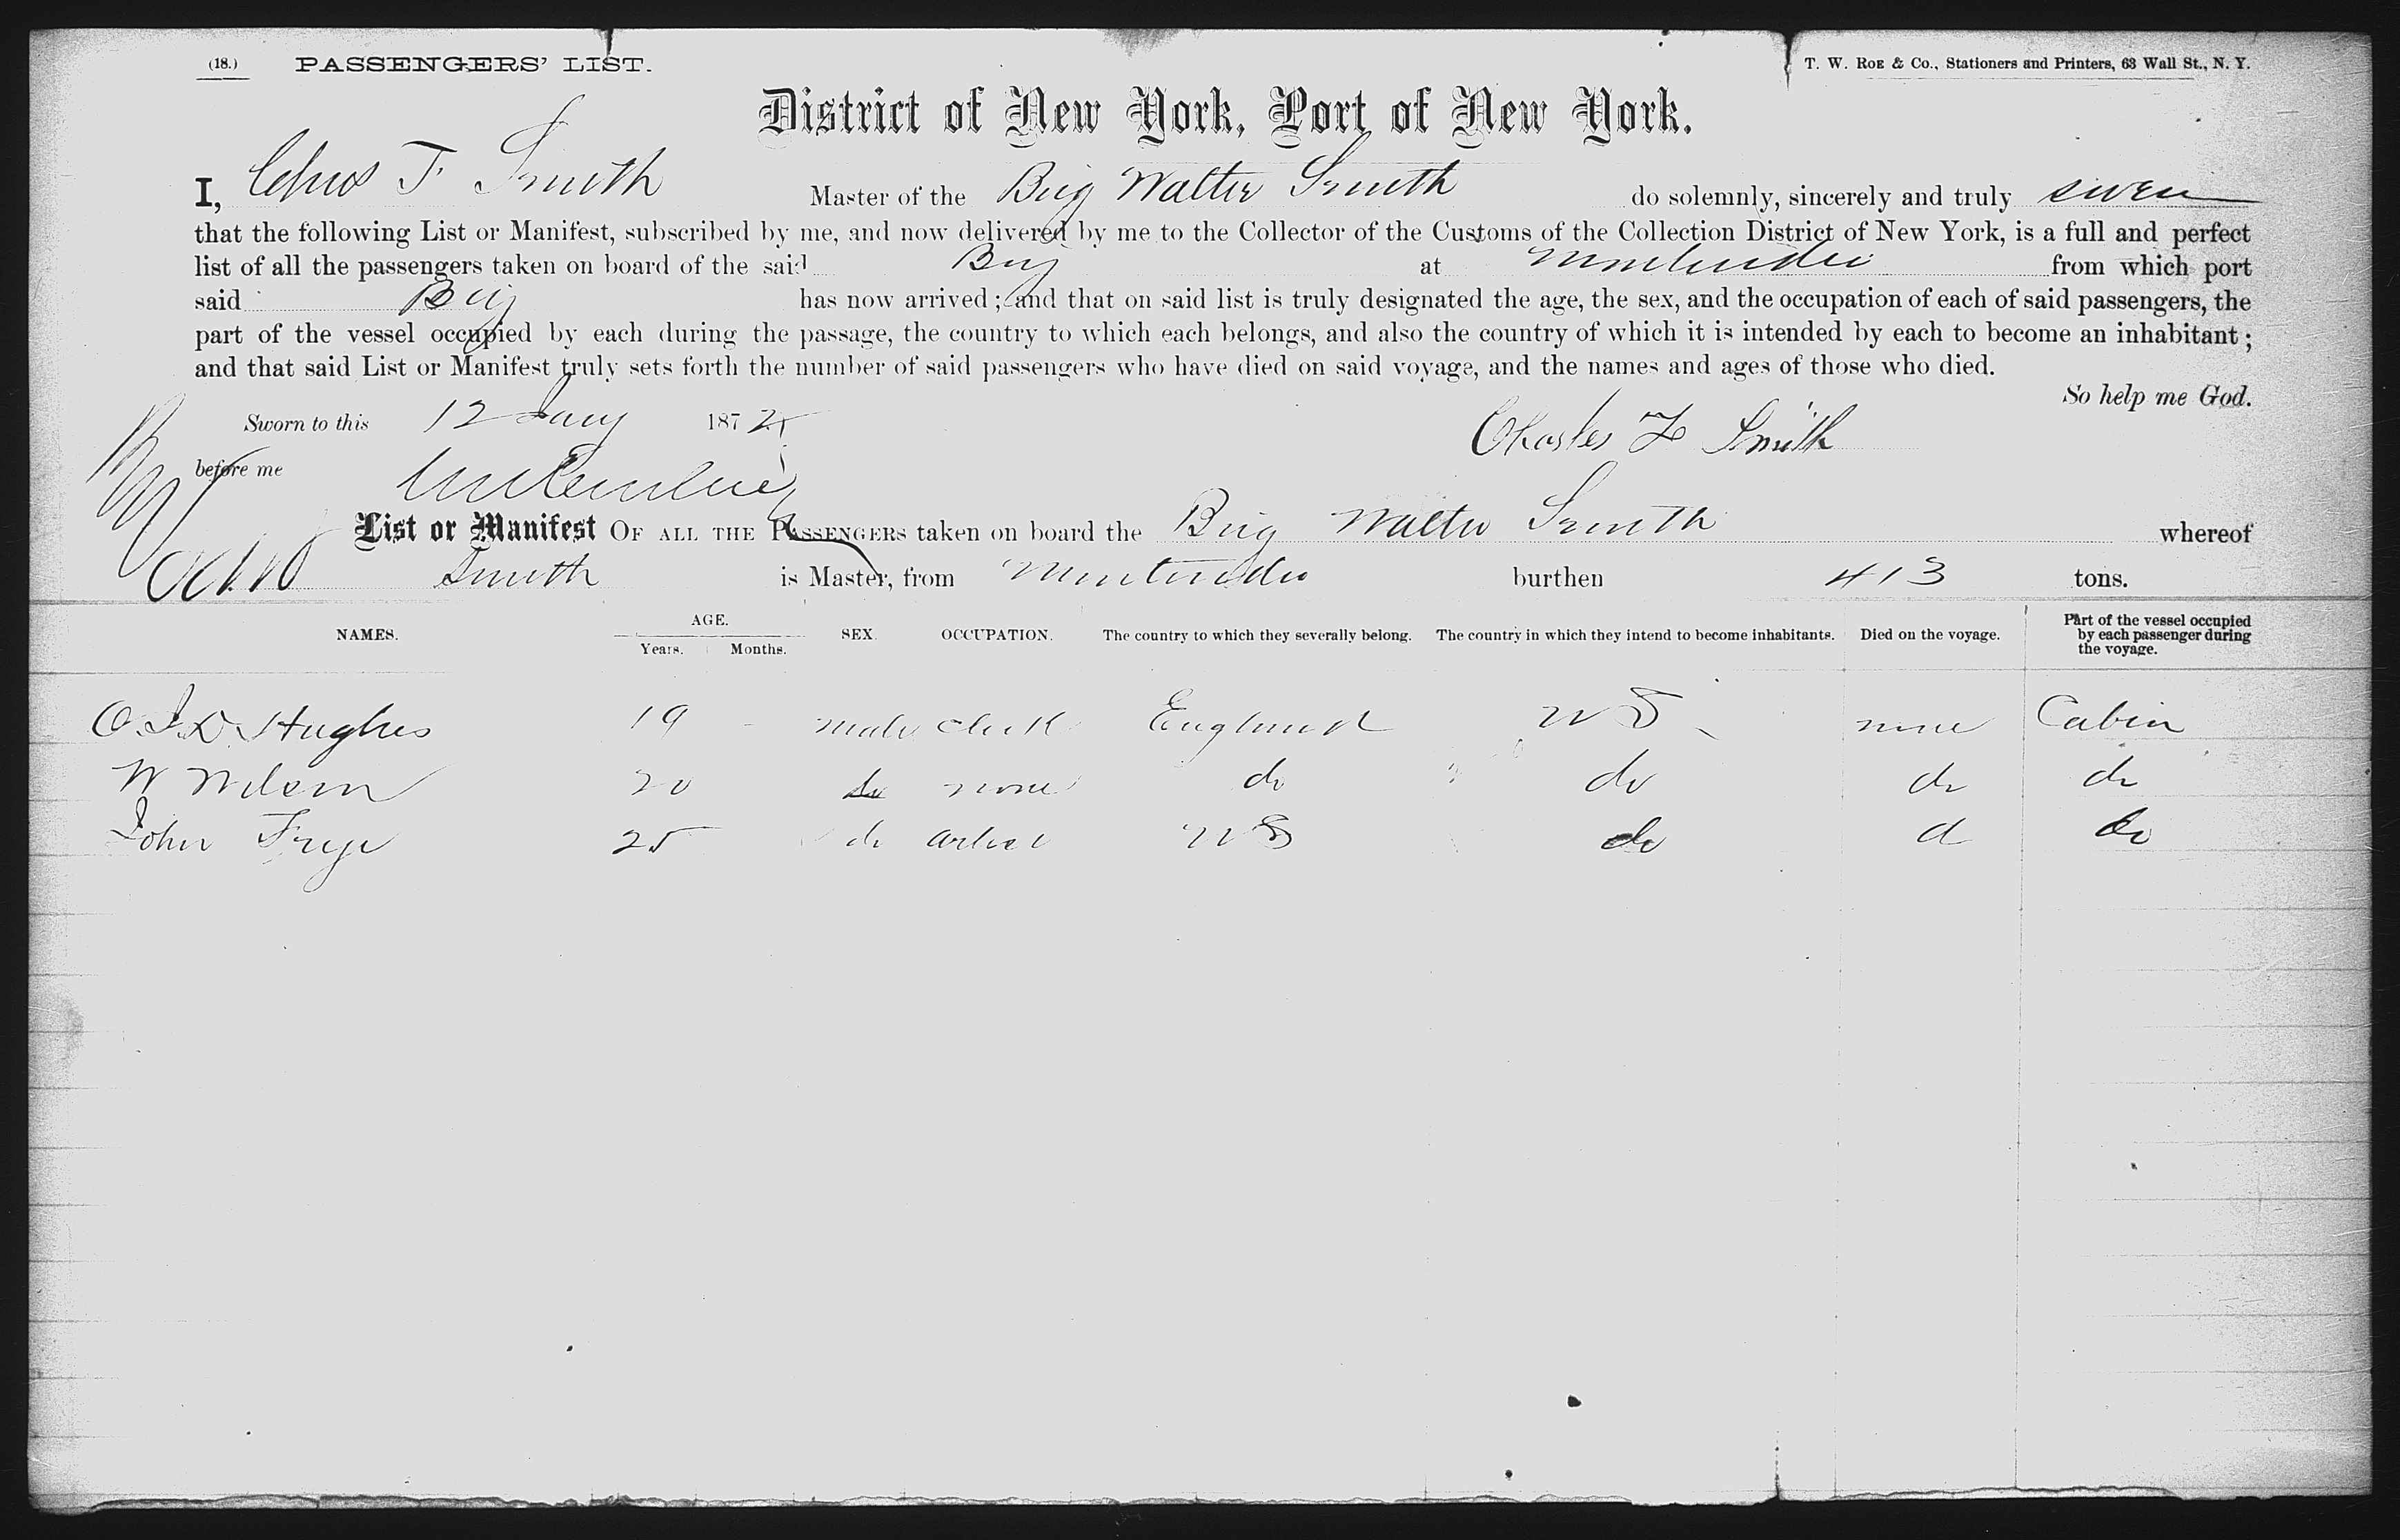 (18.) PASSENGERS' LIST. T. W. ROE & Co., Stationers and Printers, 63 Wall St., N. Y.
District of New York, Port of New York.
I, Chas F Smith Master of the Brig Walter Smith do solemnly, sincerely and truly swear
that the following List or Manifest, subscribed by me, and now delivered by me to the Collector of the Customs of the Collection District of New York, is a full and perfect
list of all the passengers taken on board of the said Brig at Montevideo from which port
said Brig has now arrived; and that on said list is truly designated the age, the sex, and the occupation of each of said passengers, the
part of the vessel occupied by each during the passage, the country to which each belongs, and also the country of which it is intended by each to become an inhabitant;
and that said List or Manifest truly sets forth the number of said passengers who have died on said voyage, and the names and ages of those who died.
So help me God.
Sworn to this 12 Jany 1872 Charles F Smith
before me
List or Manifest OF ALL THE PASSENGERS taken on board the Brig Walter Smith whereof
Smith is Master, from Montevideo burthen 413 tons.
NAMES. AGE. Years. Months. SEX. OCCUPATION. The country to which they severally belong. The country in which they intend to become inhabitants. Died on the voyage. Part of the vessel occupied by each passenger during the voyage.
O. I. D. Hughes 19 - male clerk England U S none Cabin
W Wilson 20 do none do do do do
John Frye 25 do artist U S do d do